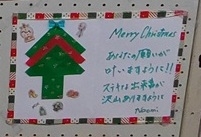 Merry Christmas
あなたの願いが
叶いますように!!
ステキな出来事が
沢山ありますように